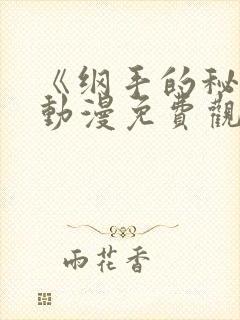 《纲手的秘
動漫免費觀
雨花香